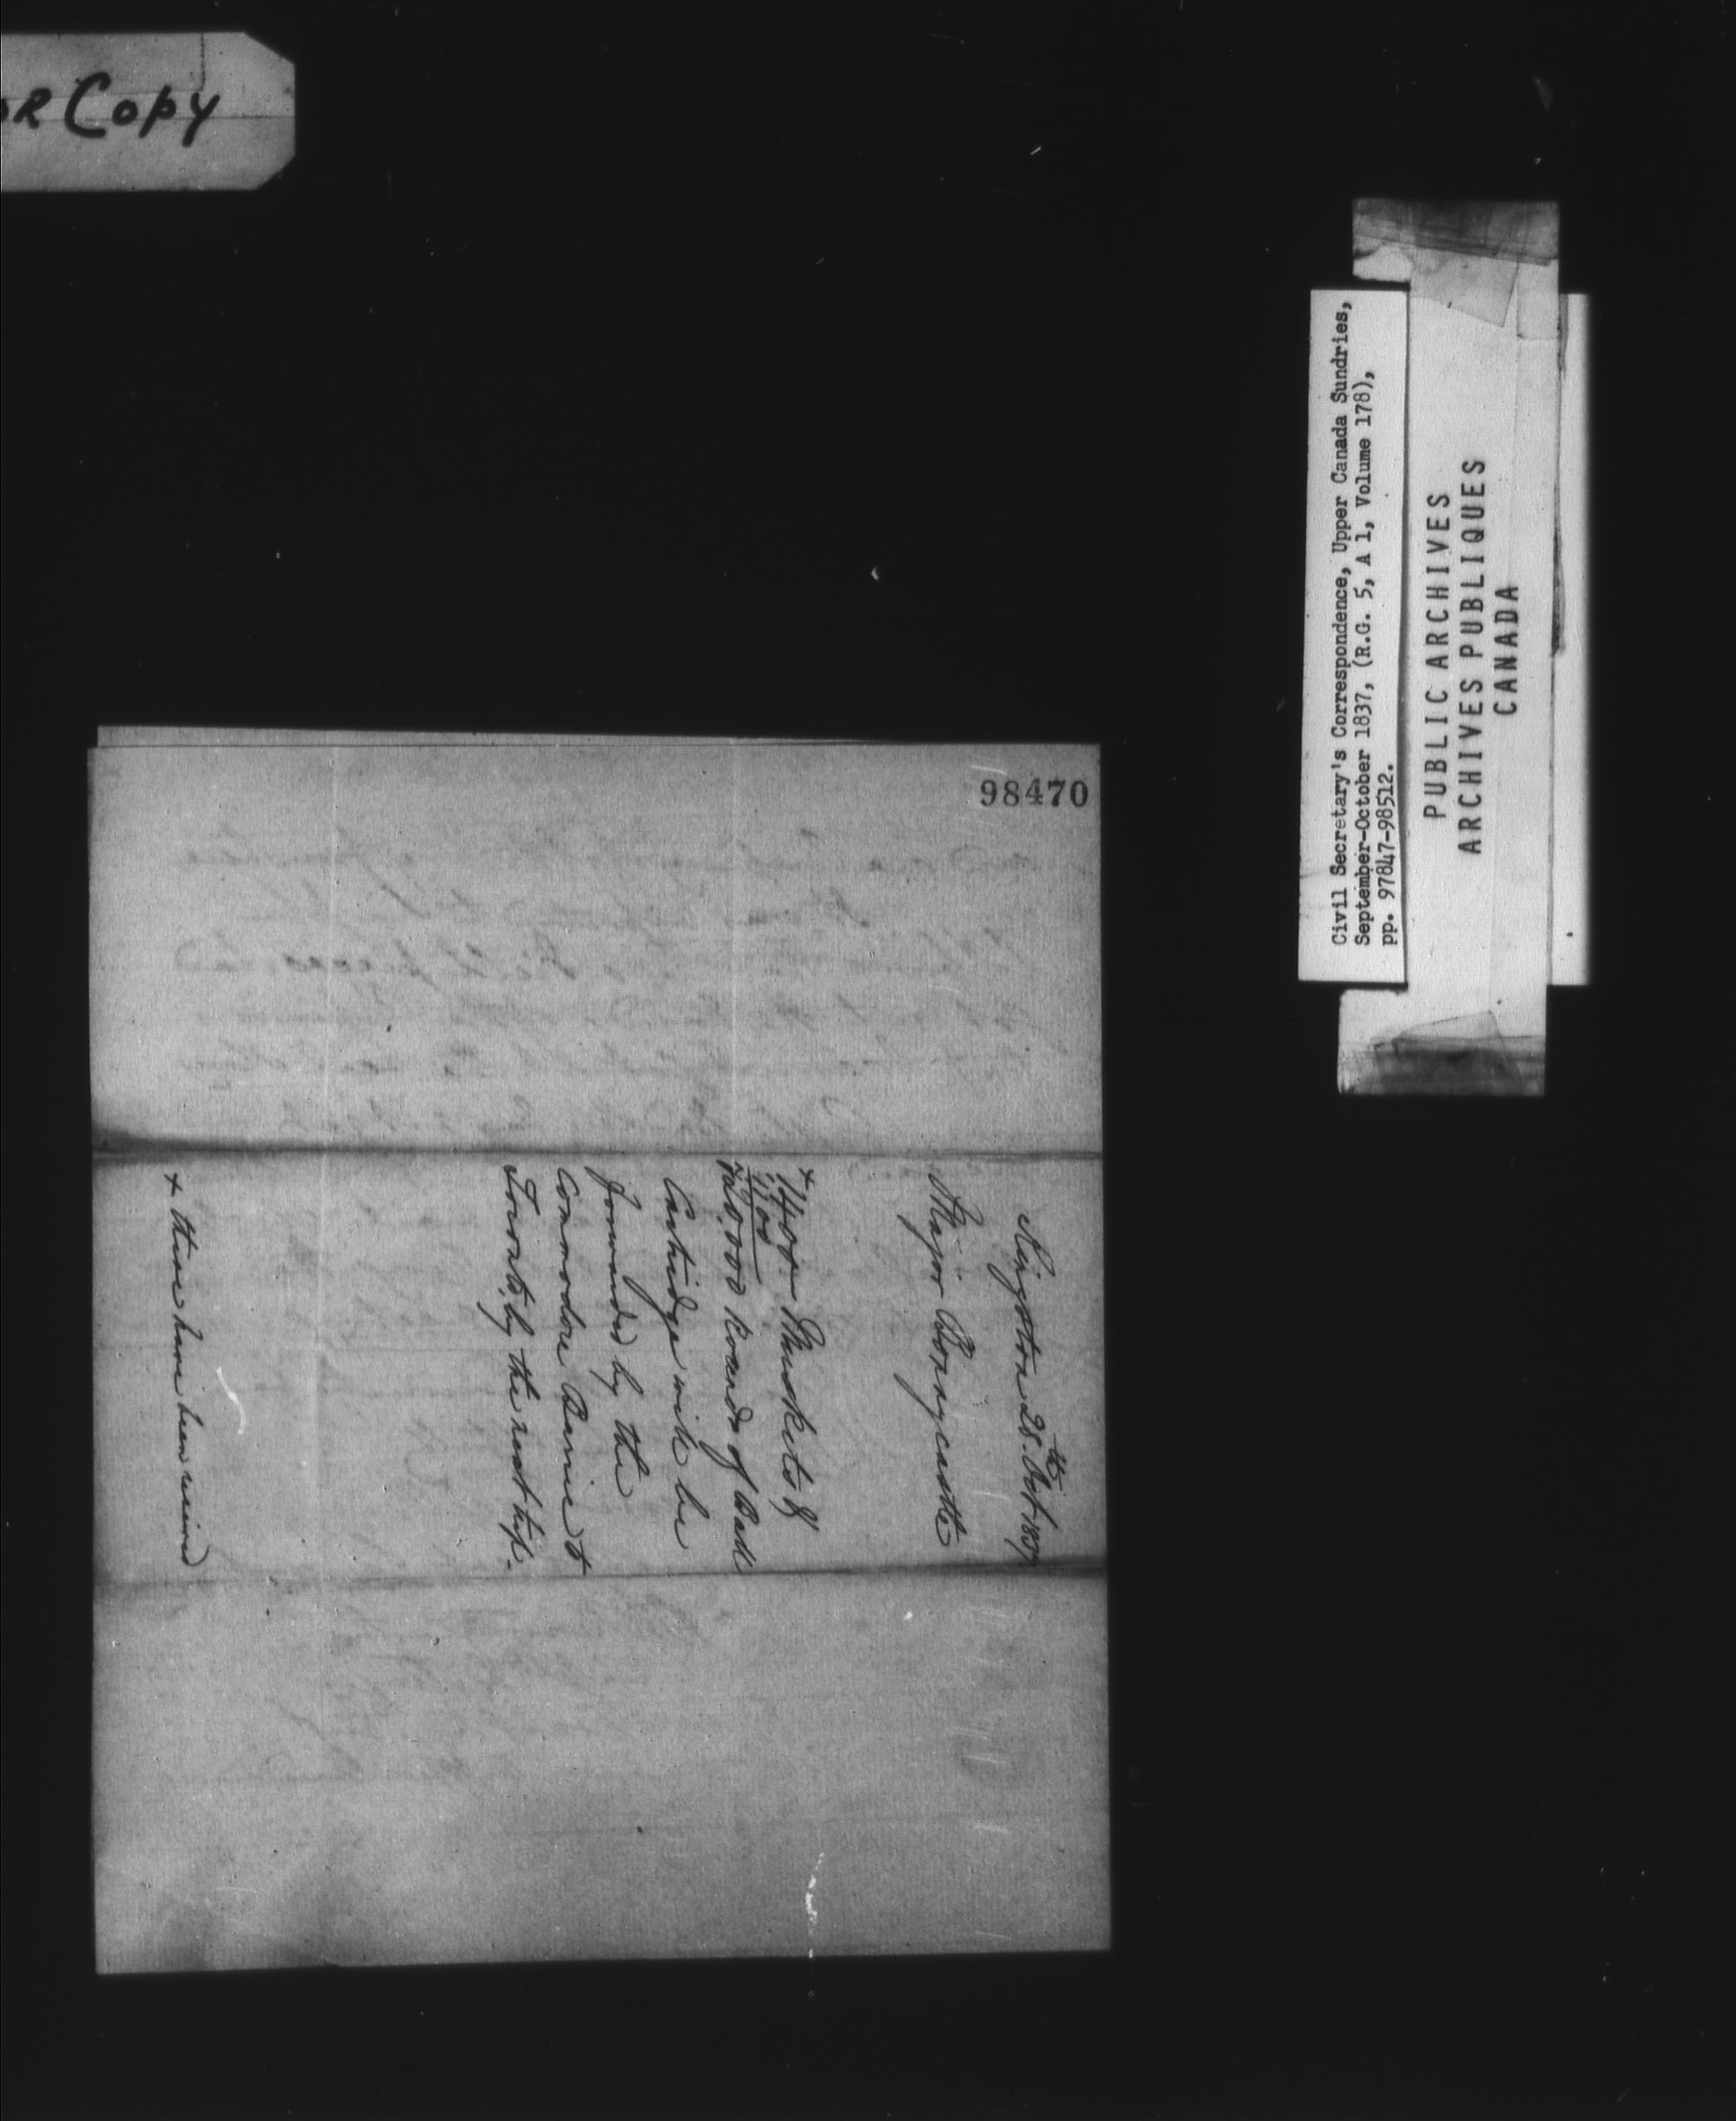 OR Copy
98470
Kingston 28th Oct 1837
Major Bonnycastle
+ 1400 Muskets &
1100
720.000 Rounds of Ball
Cartridge will be
forwarded by the
Commodore Barrie to
Toronto by the next trip.
+ these have been received
Civil Secretary's Correspondence, Upper Canada Sundries,
September-October 1837, (R.G. 5, A 1, Volume 178),
pp. 97847-98512.
PUBLIC ARCHIVES
ARCHIVES PUBLIQUES
CANADA